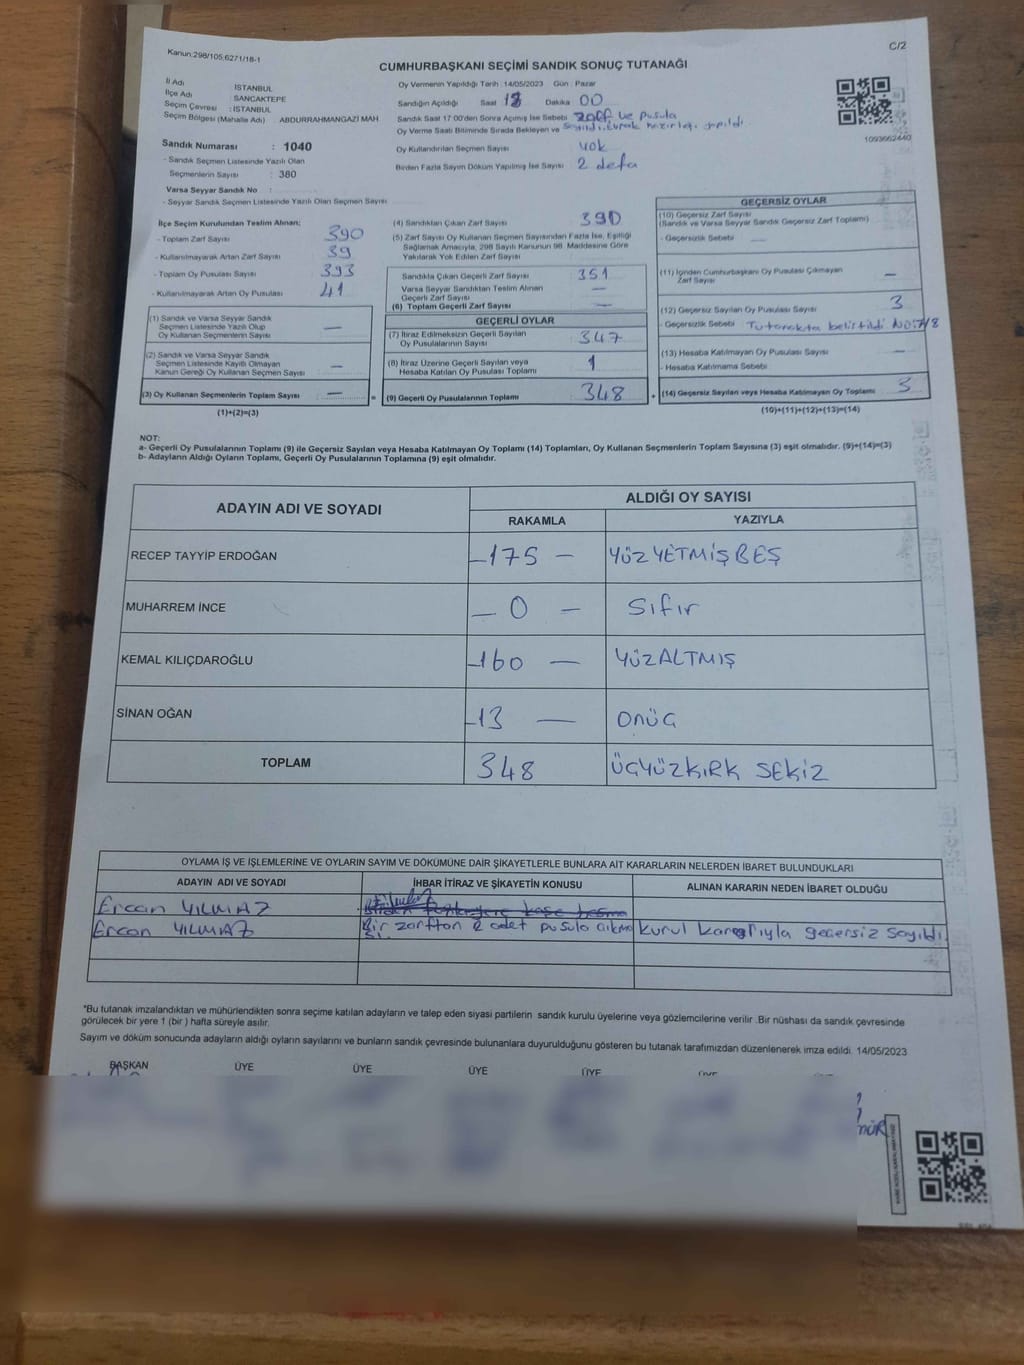 Kanun:298/105;6271/18-1
C/2
CUMHURBAŞKANI SEÇİMİ SANDIK SONUÇ TUTANAĞI
İl Adı İSTANBUL
İlçe Adı SANCAKTEPE
Seçim Çevresi : İSTANBUL
Seçim Bölgesi (Mahalle Adı) ABDURRAHMANGAZİ MAH
Sandık Numarası : 1040
- Sandık Seçmen Listesinde Yazılı Olan
Seçmenlerin Sayısı : 380
Varsa Seyyar Sandık No :
- Seyyar Sandık Seçmen Listesinde Yazılı Olan Seçmen Sayısı
Oy Vermenin Yapıldığı Tarih : 14/05/2023 Gün : Pazar
Sandığın Açıldığı Saat 18 Dakika 00
Sandık Saat 17:00'den Sonra Açımış İse Sebebi zarf ve pusula
Oy Verme Saati Bitiminde Sırada Bekleyen ve sayıldı. Evrak hazırlığı yapıldı.
Oy Kullandırılan Seçmen Sayısı yok
Birden Fazla Sayım Döküm Yapılmış İse Sayısı 2 defa
1093662440
İlçe Seçim Kurulundan Teslim Alınan;
- Toplam Zarf Sayısı 390
- Kullanılmayarak Artan Zarf Sayısı 39
- Toplam Oy Pusulası Sayısı 393
- Kullanılmayarak Artan Oy Pusulası 41
(1) Sandık ve Varsa Seyyar Sandık
Seçmen Listesinde Yazılı Olup
Oy Kullanan Seçmenlerin Sayısı —
(2) Sandık ve Varsa Seyyar Sandık
Seçmen Listesinde Kayıtlı Olmayan
Kanun Gereği Oy Kullanan Seçmen Sayısı —
(3) Oy Kullanan Seçmenlerin Toplam Sayısı — =
(1)+(2)=(3)
(4) Sandıktan Çıkan Zarf Sayısı 390
(5) Zarf Sayısı Oy Kullanan Seçmen Sayısından Fazla İse, Eşitliği
Sağlamak Amacıyla, 298 Sayılı Kanunun 98. Maddesine Göre
Yakılarak Yok Edilen Zarf Sayısı
Sandıkta Çıkan Geçerli Zarf Sayısı 351
Varsa Seyyar Sandıktan Teslim Alınan
Geçerli Zarf Sayısı —
(6) Toplam Geçerli Zarf Sayısı —
GEÇERLİ OYLAR
(7) İtiraz Edilmeksizin Geçerli Sayılan
Oy Pusulalarının Sayısı 347
(8) İtiraz Üzerine Geçerli Sayılan veya
Hesaba Katılan Oy Pusulası Toplamı 1
(9) Geçerli Oy Pusulalarının Toplamı 348 +
GEÇERSİZ OYLAR
(10) Geçersiz Zarf Sayısı
(Sandık ve Varsa Seyyar Sandık Geçersiz Zarf Toplamı)
- Geçersizlik Sebebi —
(11) İçinden Cumhurbaşkanı Oy Pusulası Çıkmayan
Zarf Sayısı —
(12) Geçersiz Sayılan Oy Pusulası Sayısı 3
- Geçersizlik Sebebi Tutanakta belirtildi No:7/8
(13) Hesaba Katılmayan Oy Pusulası Sayısı —
- Hesaba Katılmama Sebebi
(14) Geçersiz Sayılan veya Hesaba Katılmayan Oy Toplamı 3
(10)+(11)+(12)+(13)=(14)
NOT:
a- Geçerli Oy Pusulalarının Toplamı (9) ile Geçersiz Sayılan veya Hesaba Katılmayan Oy Toplamı (14) Toplamları, Oy Kullanan Seçmenlerin Toplam Sayısına (3) eşit olmalıdır. (9)+(14)=(3)
b- Adayların Aldığı Oyların Toplamı, Geçerli Oy Pusulalarının Toplamına (9) eşit olmalıdır.
ADAYIN ADI VE SOYADI
ALDIĞI OY SAYISI
RAKAMLA YAZIYLA
RECEP TAYYİP ERDOĞAN —175 — YÜZ YETMİŞBEŞ
MUHARREM İNCE — 0 — Sıfır
KEMAL KILIÇDAROĞLU —160 — YÜZALTMIŞ
SİNAN OĞAN —13 — ONÜÇ
TOPLAM 348 ÜÇYÜZKIRK SEKİZ
OYLAMA İŞ VE İŞLEMLERİNE VE OYLARIN SAYIM VE DÖKÜMÜNE DAİR ŞİKAYETLERLE BUNLARA AİT KARARLARIN NELERDEN İBARET BULUNDUKLARI
ADAYIN ADI VE SOYADI İHBAR İTİRAZ VE ŞİKAYETİN KONUSU ALINAN KARARIN NEDEN İBARET OLDUĞU
Ercan YILMAZ
Ercan YILMAZ Bir zarftan 2 adet pusula çıkma kurul kararıyla geçersiz sayıldı.
sı.
*Bu tutanak imzalandıktan ve mühürlendikten sonra seçime katılan adayların ve talep eden siyasi partilerin sandık kurulu üyelerine veya gözlemcilerine verilir .Bir nüshası da sandık çevresinde
görülecek bir yere 1 (bir ) hafta süreyle asılır.
Sayım ve döküm sonucunda adayların aldığı oyların sayılarını ve bunların sandık çevresinde bulunanlara duyurulduğunu gösteren bu tutanak tarafımızdan düzenlenerek imza edildi. 14/05/2023
BAŞKAN ÜYE ÜYE ÜYE ÜYE